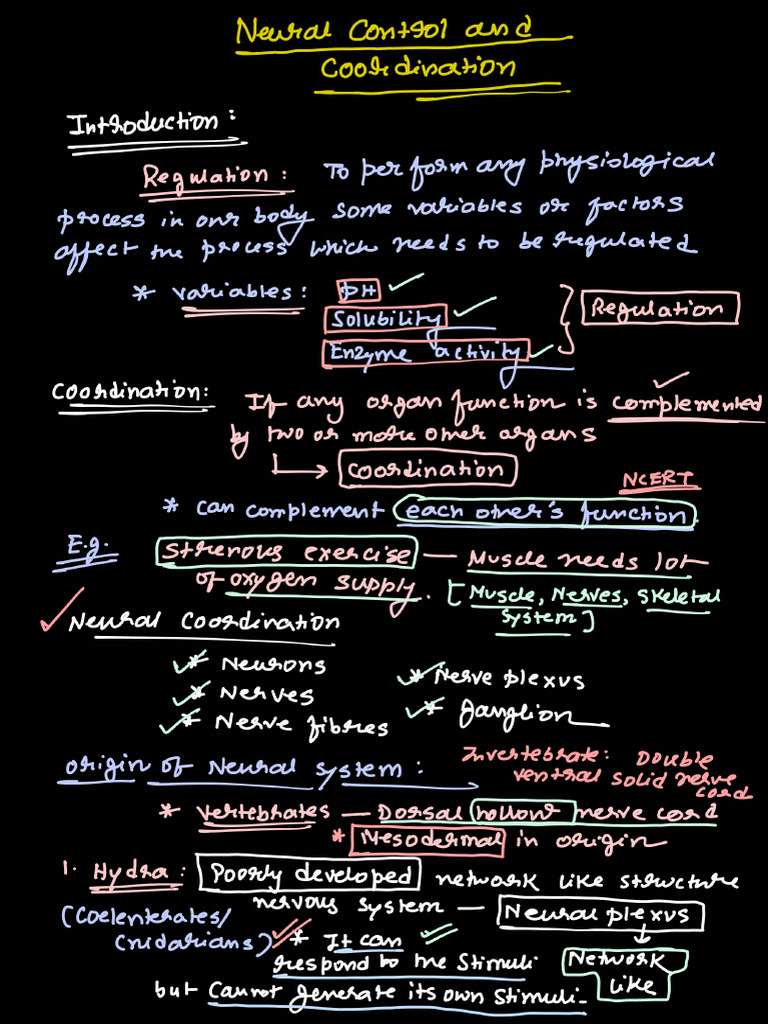 Neural Control and
Coordination
Introduction:
Regulation: To perform any physiological
process in our body some variables or factors
affect the process which needs to be regulated
* variables: pH
Solubility
Enzyme activity
Regulation
Coordination: If any organ function is complemented
by two or more other organs
Coordination
NCERT
* can complement each other's function.
E.g. Strenous exercise — Muscle needs lot
of oxygen supply. [Muscle, Nerves, Skeletal
System]
Neural Coordination
* Neurons
* Nerves
* Nerve fibres
* Nerve plexus
* Ganglion
Origin of Neural system:
Invertebrate: Double
ventral solid nerve
cord
* vertebrates — Dorsal hollow nerve cord
* Mesodermal in origin
1. Hydra: Poorly developed network like structure
nervous system — Neural plexus
(Coelenterates/
Cnidarians)
* It can
respond to the Stimuli
Network
like
but Cannot generate its own Stimuli.